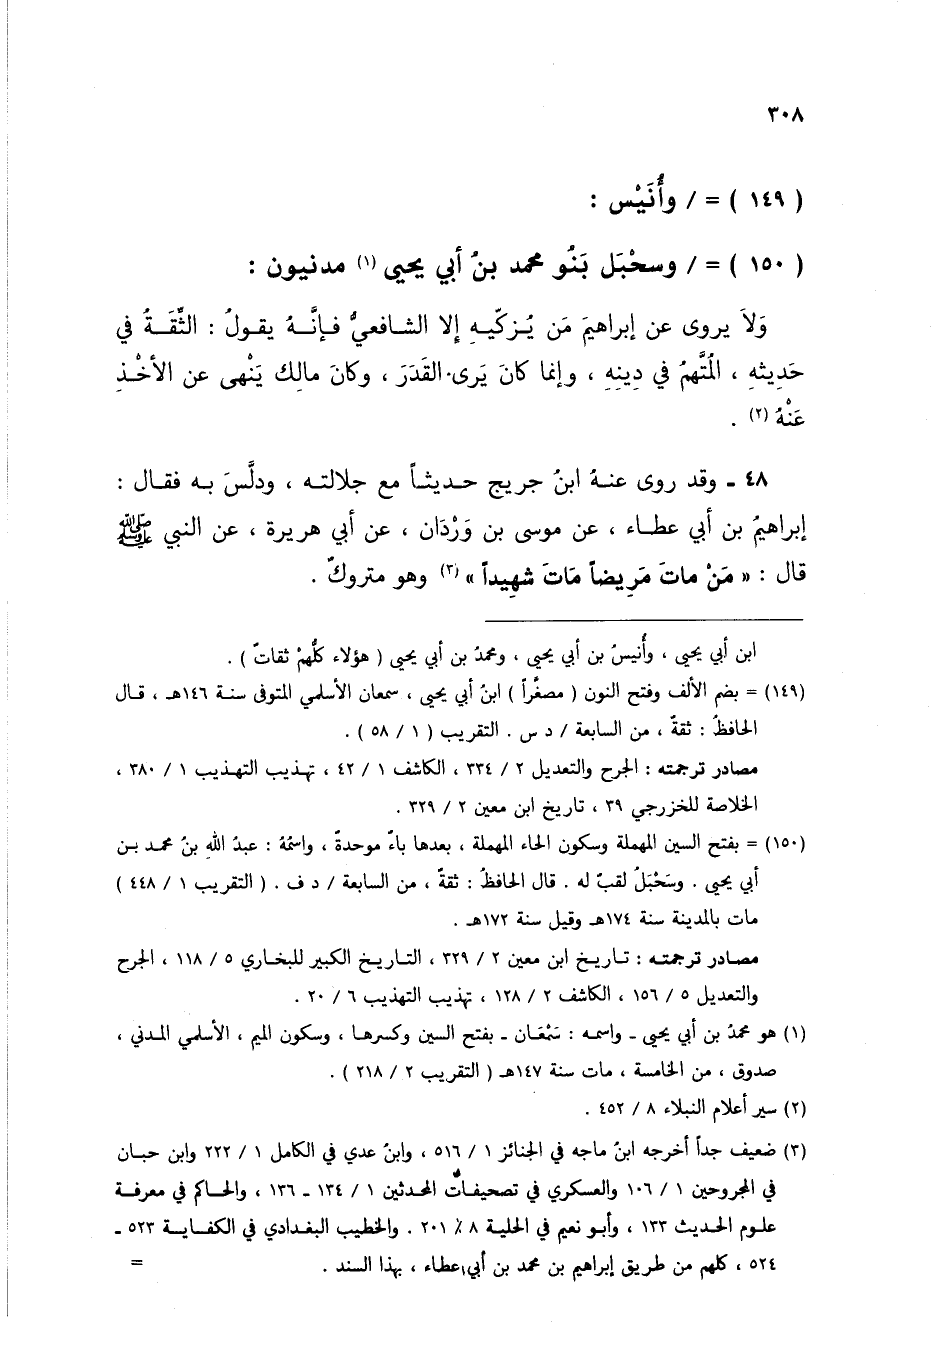 ٣٠٨
( ١٤٩ ) = / وأُنَيْس :
( ١٥٠ ) = / وسحْبَل بَنُو محمد بنُ أبي يحيى (١) مدنيون :
وَلاَ يروى عن إبراهيمَ مَن يُـزكّيـهِ إلا الشـافعيُّ فـإنَّـهُ يقـولُ : الثِّقَـةُ في
حَدِيثهِ ، المُتَّهمُ في دِينِهِ ، وإنما كانَ يَرى القَدَرَ ، وكانَ مالِك يَنْهى عن الأخْـذِ
عَنْهُ (٢) .
٤٨ ـ وقد روى عنـهُ ابنُ جريج حـديثـاً مع جلالتـه ، ودلَّسَ بـه فقـال :
إبراهيمُ بن أبي عطـاء ، عن موسى بن وَرْدَان ، عن أبي هريرة ، عن النبي ﷺ
قال : « مَنْ ماتَ مَرِيضاً مَاتَ شهِيداً » (٣) وهو متروكٌ .
ابن أبي يحيى ، وأُنيسُ بن أبي يحيى ، ومحمدُ بن أبي يحيى ( هؤلاء كلُّهمْ ثقاتٌ ) .
(١٤٩) = بضم الألف وفتح النون ( مصغَّراً ) ابنُ أبي يحيى ، سمعان الأسلمي المتوفى سنـة ١٤٦هـ ، قـال
الحافظُ : ثقةٌ ، من السابعة / د س . التقريب ( ١ / ٥٨ ) .
مصادر ترجمته : الجرح والتعديل ٢ / ٣٣٤ ، الكاشف ١ / ٤٢ ، تهـذيب التهـذيب ١ / ٣٨٠ ،
الخلاصة للخزرجي ٣٩ ، تاريخ ابن معين ٢ / ٣٢٩ .
(١٥٠) = بفتح السين المهملة وسكون الحاء المهملة ، بعدها باءٌ موحدةٌ ، واسمُهُ : عبدُ اللهِ بنُ محمـد بـن
أبي يحيى . وسَحْبَلُ لقبٌ له . قال الحافظُ : ثقةٌ ، من السابعة / د ف . ( التقريب ١ / ٤٤٨ )
مات بالمدينة سنة ١٧٤هـ وقيل سنة ١٧٢هـ .
مصـادر ترجمتـه : تـاريخ ابن معين ٢ / ٣٢٩ ، التـاريـخ الكبير للبخاري ٥ / ١١٨ ، الجرح
والتعديل ٥ / ١٥٦ ، الكاشف ٢ / ١٢٨ ، تهذيب التهذيب ٦ / ٢٠ .
(١) هو محمدُ بن أبي يحيى ـ واسمـه : سَمْعَـان ـ بفتح السين وكسرهـا ، وسكون الميم ، الأسلمي المـدني ،
صدوق ، من الخامسة ، مات سنة ١٤٧هـ ( التقريب ٢ / ٢١٨ ) .
(٢) سير أعلام النبلاء ٨ / ٤٥٢ .
(٣) ضعيف جداً أخرجه ابنُ ماجه في الجنائز ١ / ٥١٦ ، وابنُ عدي في الكامل ١ / ٢٢٢ وابن حبـان
في المجروحين ١ / ١٠٦ والعسكري في تصحيفات المحدثين ١ / ١٣٤ ـ ١٣٦ ، والحاكم في معرفـة
علـوم الحديث ١٣٣ ، وأبـو نعيم في الحلية ٨ / ٢٠١ . والخطيب البغدادي في الكفـايـة ٥٢٣ ـ
٥٢٤ ، كلهم من طريق إبراهيم بن محمد بن أبي عطاء ، بهذا السند . =